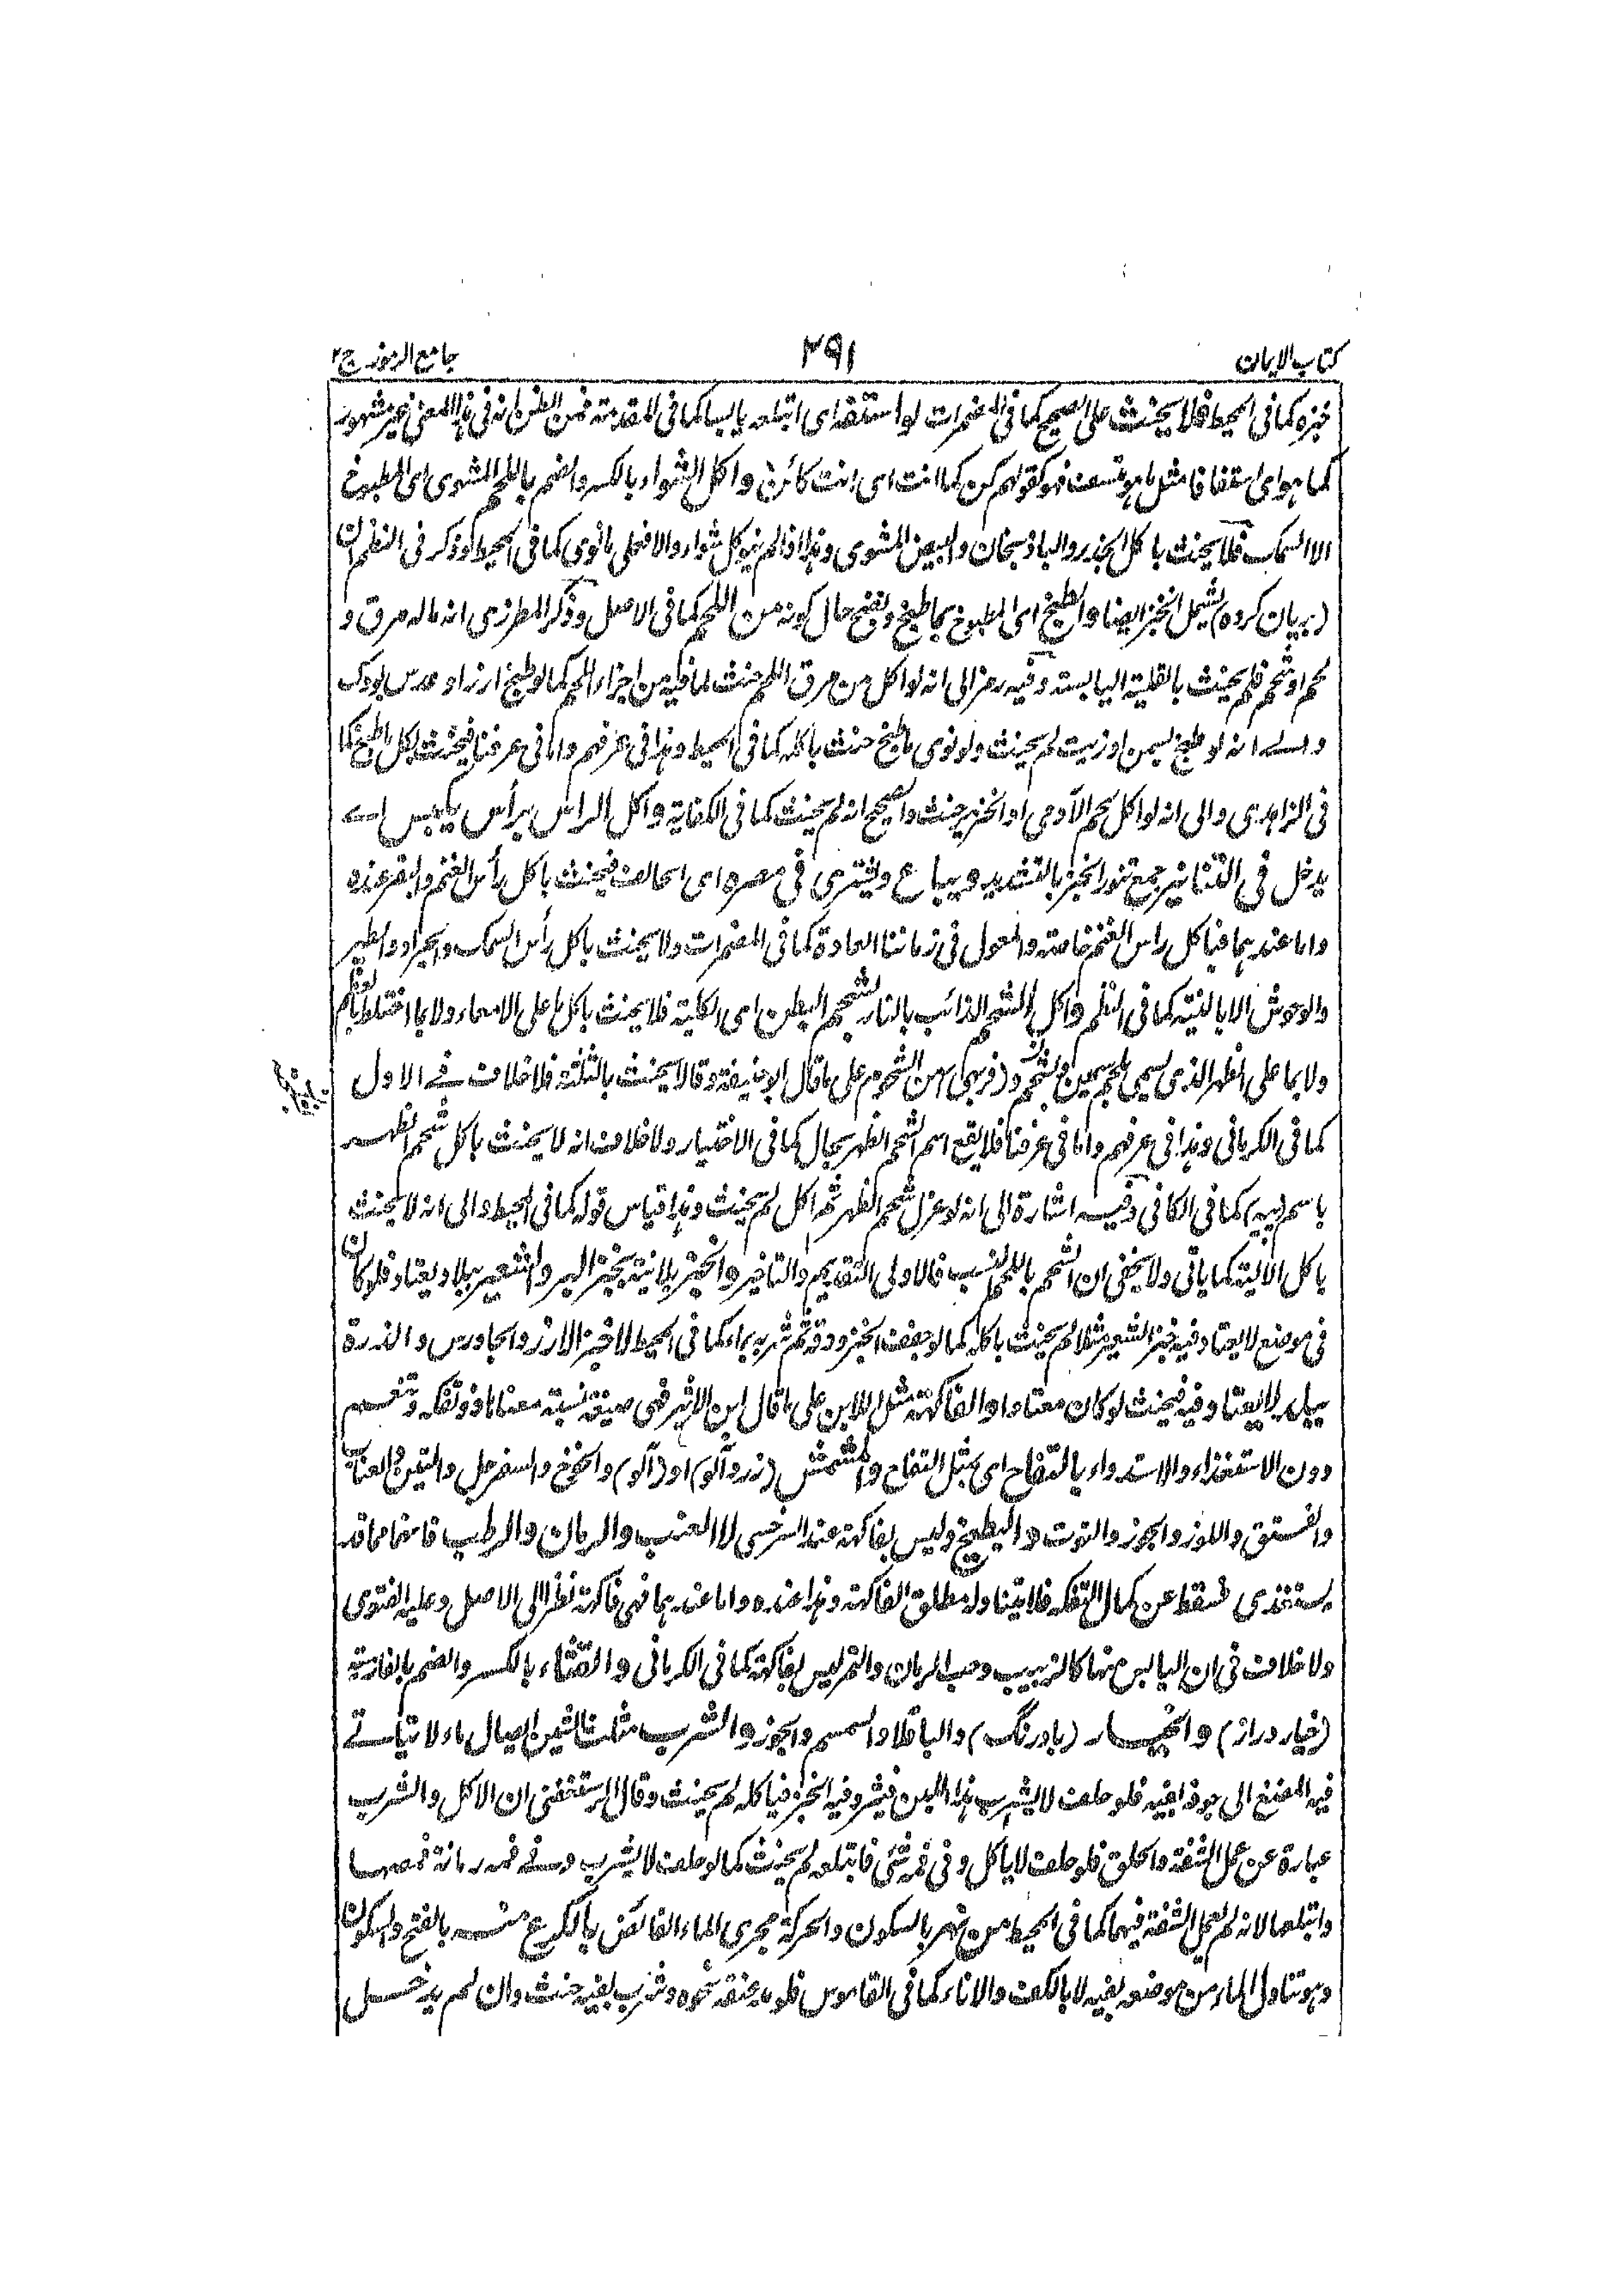 كتاب الايمان
٢٩١
جامع الرموز ج٢
خبزه كما في المحيط فلا يحنث على الصحيح كما في المضمرات لو استفه اى ابتلعه يابسا كما في المقدمة فمن الظن انه في هذا المعنى غير مشهور
كما هو اى استفافا مثل ما هو فهو كقولهم كن كما انت اى انت كائن و اكل الشواء بالكسر والضم باللحم المشوى اى المطبوخ
الا السمك فلا يحنث باكل الجذر والباذنجان والبيض المشوى وهذا اذا لم ينو كل شواء والا فعلى ما نوى كما في المحيط وذكر في النظم ان
(بريان كرده) يشمل الخبز ايضا والطبيخ اى المطبوخ بما طبخ ونضج حال كونه من اللحم كما في الاصل وذكر المطرزى انه ما له مرق و
لحم او شحم فلم يحنث بالقلية اليابسة وفيه رمز الى انه لو اكل من مرق اللحم حنث لما فيه من اجزاء اللحم كما لو طبخ ارز او عدس بودك
والى انه لو طبخ بسمن او زيت لم يحنث ولو نوى ما طبخ حنث باكله كما في المحيط وهذا في عرفهم واما في عرفنا فيحنث بكل ما طبخ كما
في الزاهدى والى انه لو اكل لحم الآدمى او الخنزير حنث والصحيح انه لم يحنث كما في الكفاية و اكل الراس برأس يكبس اى
يدخل في التنانير جمع تنور الخبز بالتشديد و يباع ويشترى في مصره اى الحالف فيحنث باكل رأس الغنم والبقر عنده
واما عندهما فباكل راس الغنم خاصة والمعول في زماننا العادة كما في المضمرات ولا يحنث باكل رأس السمك والجراد والطير
والوحوش الا بالنية كما في النظم و اكل الشحم الذائب بالنار بشحم البطن اى الكلية فلا يحنث باكل ما على الامعاء ولا بما اختلط بالعظم
ولا بما على الظهر الذى يسمى بلحم سمين و شحم و(فربهى) من الشحوم على ما قال ابو حنيفة وقالا يحنث بالثلثة فلا خلاف في الاول
كما في الكرمانى وهذا في عرفهم واما في عرفنا فلا يقع اسم الشحم الظهر بحال كما في الاختيار ولا خلاف انه لا يحنث باكل شحم الظهر
باسم (پيه) كما في الكافى وفيه اشارة الى انه لو عزل شحم الظهر ثم اكل لم يحنث وهذا قياس قوله كما في المحيط والى انه لا يحنث
باكل الالية كما ياتى ولا يخفى ان الشحم باللحم انسب فالاولى التقديم والتاخير و الخبز بلا نية بخبز البر والشعير ببلاد يعتاد فلو كان
في موضع لا يعتاد فيه خبز الشعير مثلا لم يحنث باكله كما لو جفف الخبز ودقه ثم شربه بماء كما في المحيط لا خبز الارز والجاورس و الذرة
ببلد لا يعتاد فيه فيحنث لو كان معتادا و الفاكهة مثل اللابن على ما قال ابن الاثير فهى صيغة نسبة معناها ذو تفكه وتنعم
دون الاستغذاء والاستدواء بالتفاح اى بمثل التفاح والمشمش (زردآلو) او (آلو) والخوخ والسفرجل والتين والعناب
والفستق واللوز والجوز والتوت و البطيخ وليس بفاكهة عند السرخسى لا العنب والرمان والرطب فانها مما قد
يستغذى فسقط عن كمال التفكه فلا يتناوله مطلق الفاكهة وهذا عنده واما عندهما فهى فاكهة نظرا الى الاصل وعليه الفتوى
ولا خلاف في ان اليابس منها كالزبيب وحب الرمان والتمر ليس بفاكهة كما في الكرمانى و القثاء بالكسر والضم بالفارسية
(خيار دراز) و الخيار (بادرنگ) والباقلاء والسمسم والجوز و الشرب مثلث الشين ايصال ماء لا يتاتى
فيه المضغ الى جوفه بفيه فلو حلف لا يشرب هذا اللبن فيثرد فيه الخبز فياكله لم يحنث وقال الرستغفنى ان الاكل والشرب
عبارة عن عمل الشفة والحلق فلو حلف لا ياكل وفي فمه شئ فابتلعه لم يحنث كما لو حلف لا يشرب وفي فمه رمانة فمصها
وابتلعها لانه لم تعمل الشفة فيهما كما في المحيط من نهر بالسكون والحركة مجرى الماء الفائض بالكرع منه بالفتح والسكون
وهو تناول الماء من موضعه بفيه لا بالكف والاناء كما في القاموس فلو مد عنقه نحوه وشرب بفيه حنث وان لم يدخل